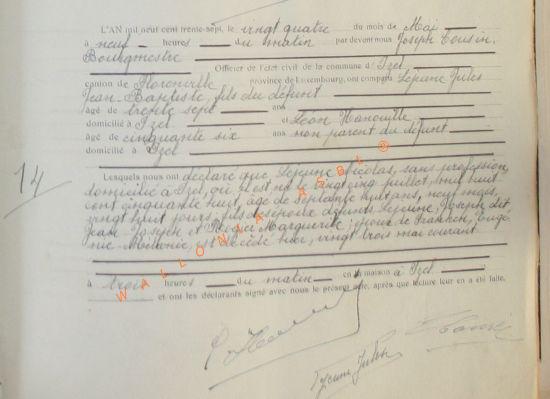 L'AN mil neuf cent trente-sept, le vingt quatre du mois de Mai
à neuf heures du matin par devant nous Joseph Cousin,
Bourgmestre
Officier de l'état civil de la commune d'Izel
canton de Florenville province de Luxembourg, ont comparu Lejeune Jules
Jean-Baptiste, fils du défunt
âgé de trente sept ans
domicilié à Izel et Léon Hanouille
âgé de cinquante six ans non parent du défunt
domicilié à Izel
14
Lesquels nous ont déclaré que Lejeune Nicolas, sans profession,
domicilié à Izel, où il est né le vingt cinq juillet, mil huit
cent cinquante huit, âgé de septante huit ans, neuf mois,
vingt huit jours, fils des époux défunts Lejeune, Joseph dit
Jean Joseph et Marguerite; époux de Francken, Eugé
nie Mélanie, est décédé hier, vingt trois mai courant
à trois heures du matin en sa maison à Izel
et ont les déclarants signé avec nous le présent acte, après que lecture leur en a été faite.
WALLONIA ASBL ©
Lejeune Jules